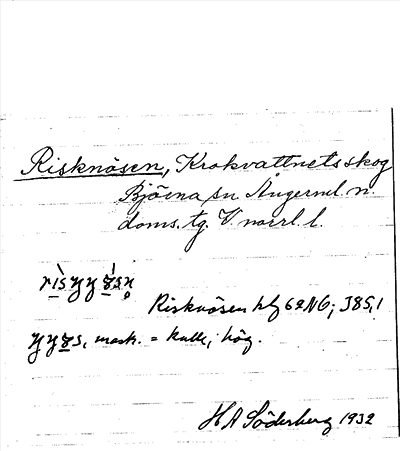 Risknösen, Krokvattnets skog
Björna sn Ångerml. n.
doms. tg. V. norrl. l.
Risknösen hlg 62NO; 385,1
mask. = kulle, hög.
H A Söderberg 1932